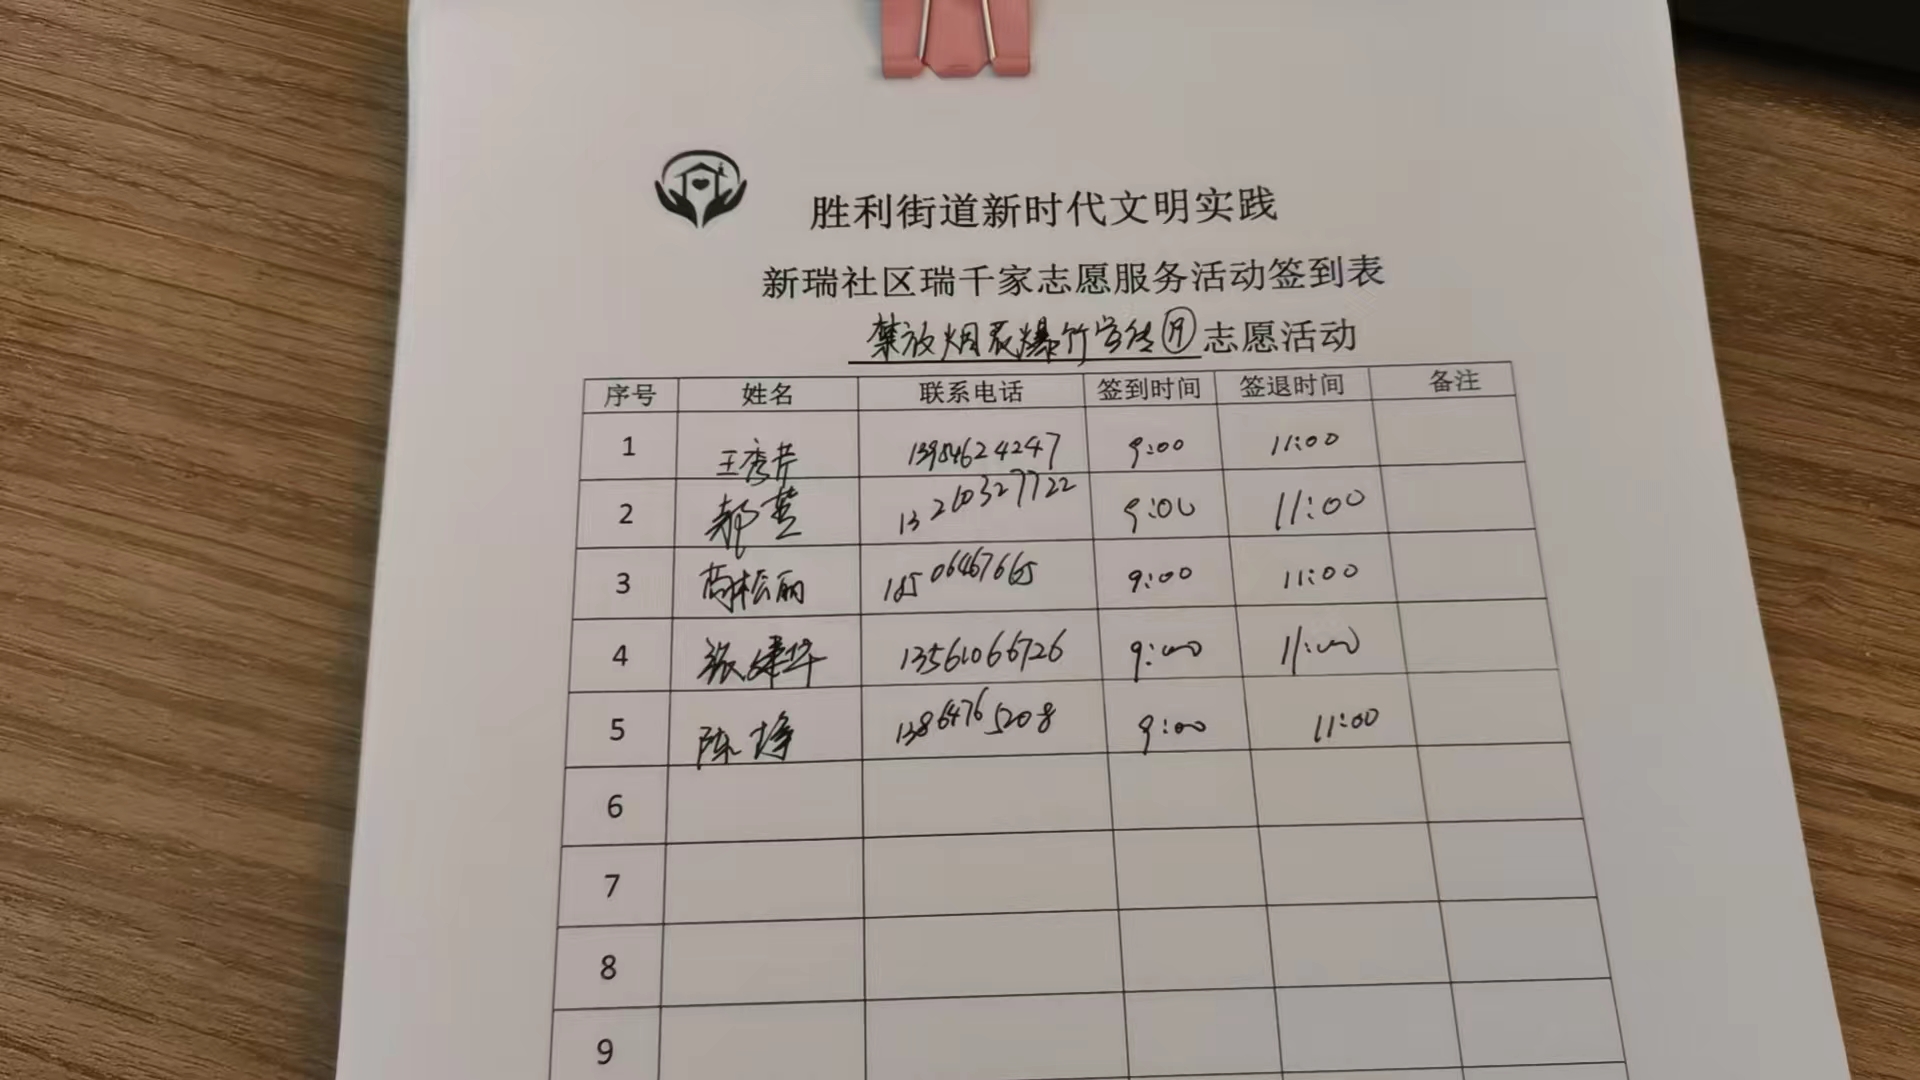 胜利街道新时代文明实践
新瑞社区瑞千家志愿服务活动签到表
禁放烟花爆竹宣传月志愿活动
序号 姓名 联系电话 签到时间 签退时间 备注
1 王秀芹 9:00 11:00
2 郝英 13210327722 9:00 11:00
3 尚松丽 18506467665 9:00 11:00
4 张建华 13561066726 9:00 11:00
5 陈婷 13864765208 9:00 11:00
6
7
8
9